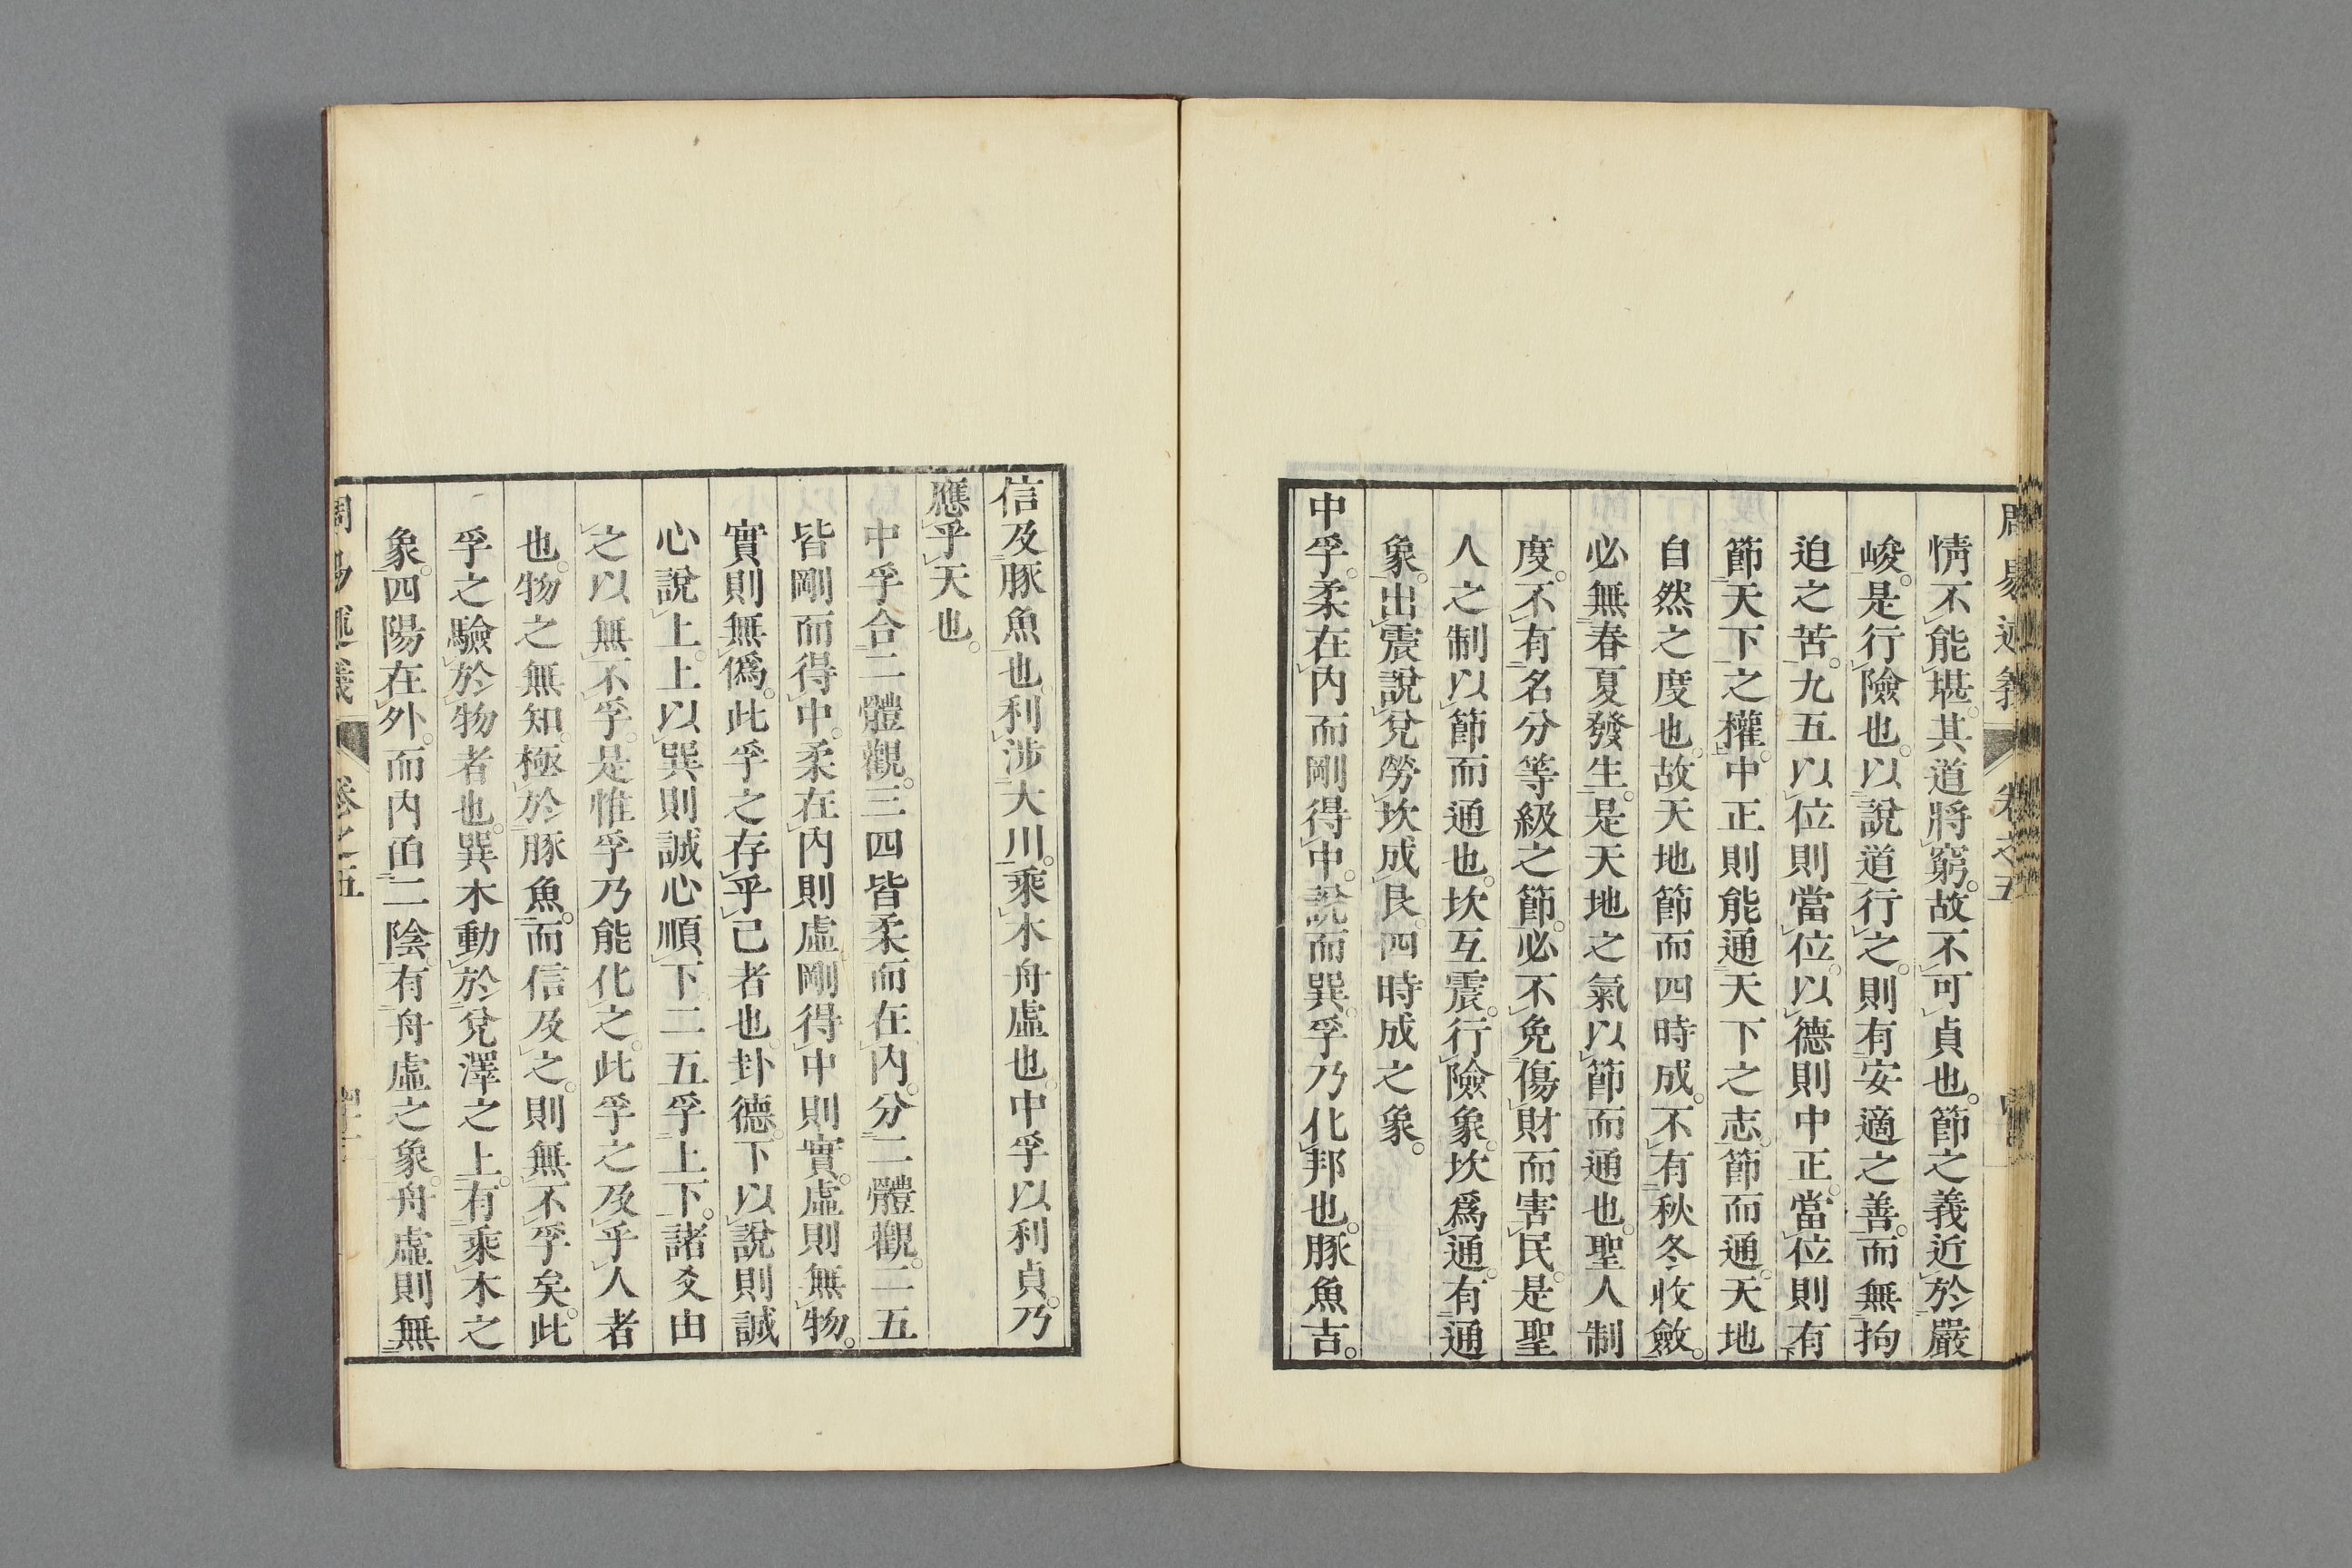 周易述義 卷之五
情不能堪。其道將窮。故不可貞也。節之義近於嚴
峻。是行險也。以說道行之。則有安適之善。而無拘
迫之苦。九五以位則當位。以德則中正。當位則有
節天下之權。中正則能通天下之志。節而通。天地
自然之度也。故天地節而四時成。不有秋冬收斂。
必無春夏發生。是天地之氣以節而通也。聖人制
度。不有名分等級之節。必不免傷財而害民。是聖
人之制以節而通也。坎互震。行險象。坎爲通。有通
象。出震說兌勞坎成艮。四時成之象。
中孚。柔在內而剛得中。說而巽。孚乃化邦也。豚魚吉。
信及豚魚也。利涉大川。乘木舟虛也。中孚以利貞。乃
應乎天也。
中孚合二體觀。三四皆柔而在內。分二體觀。二五
皆剛而得中。柔在內則虛。剛得中則實。虛則無物。
實則無僞。此孚之存乎己者也。卦德。下以說則誠
心說上。上以巽則誠心順下。二五孚上下。諸爻由
之以無不孚。是惟孚乃能化之。此孚之及乎人者
也。物之無知。極於豚魚。而信及之。則無不孚矣。此
孚之驗於物者也。巽木動於兌澤之上。有乘木之
象。四陽在外。而內函二陰。有舟虛之象。舟虛則無
周易述義 卷之五